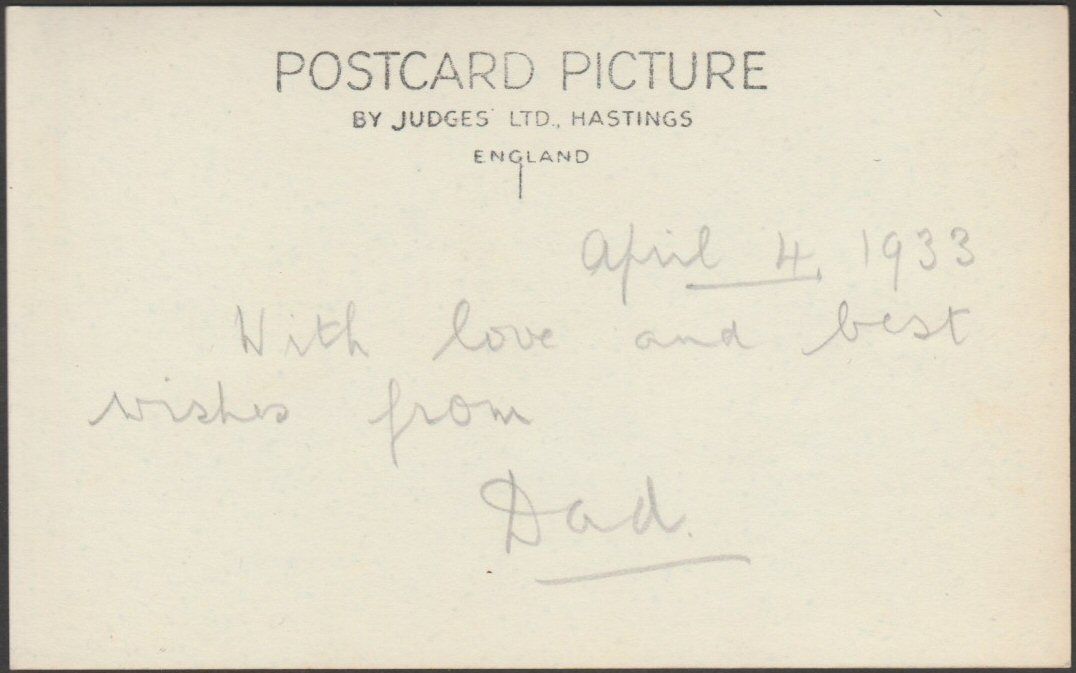 POSTCARD PICTURE
BY JUDGES' LTD., HASTINGS
ENGLAND
April 4, 1933
With love and best
wishes from
Dad.